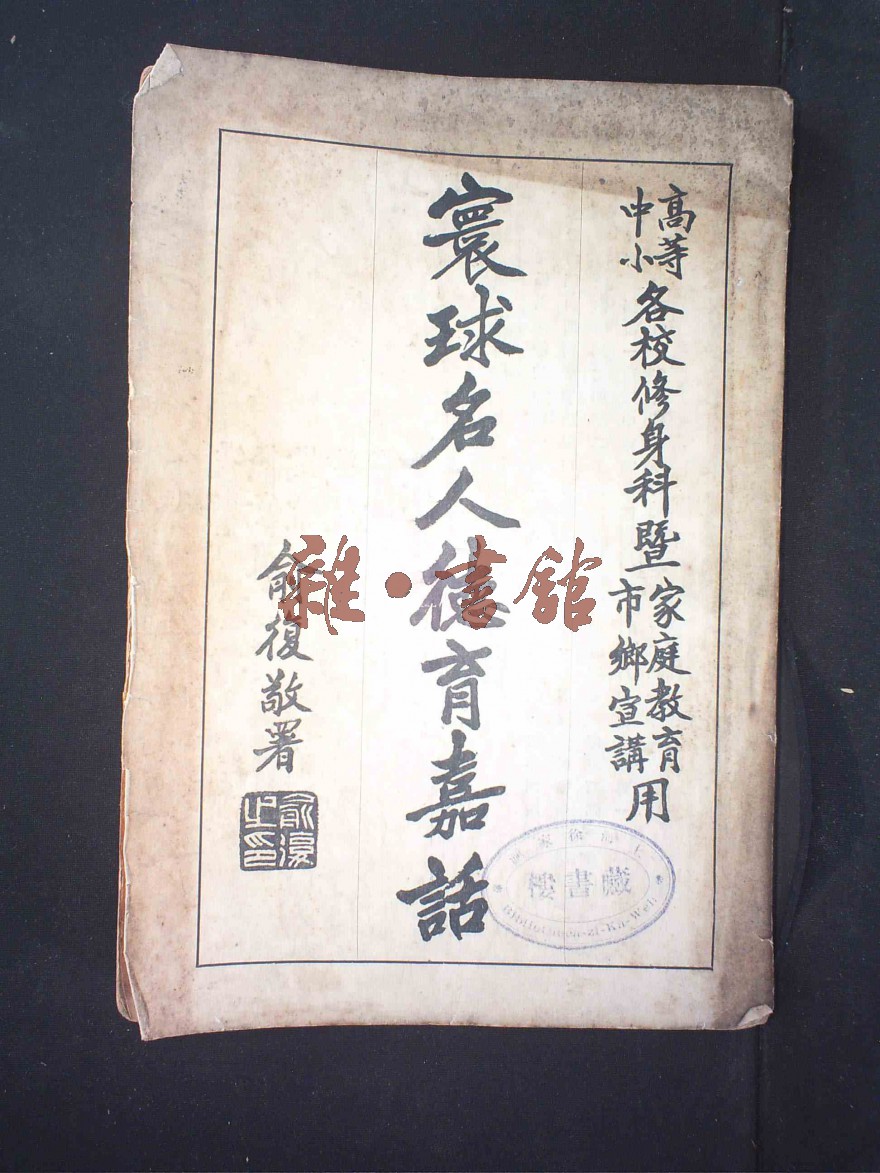 高等
中小
各校修身科暨
家庭教育
市鄉宣講
用
寰球名人德育嘉話
俞復敬署
俞復之印
上海徐家滙
藏書樓
Bibliotheca-Zi-Ka-Wei
雜·書館